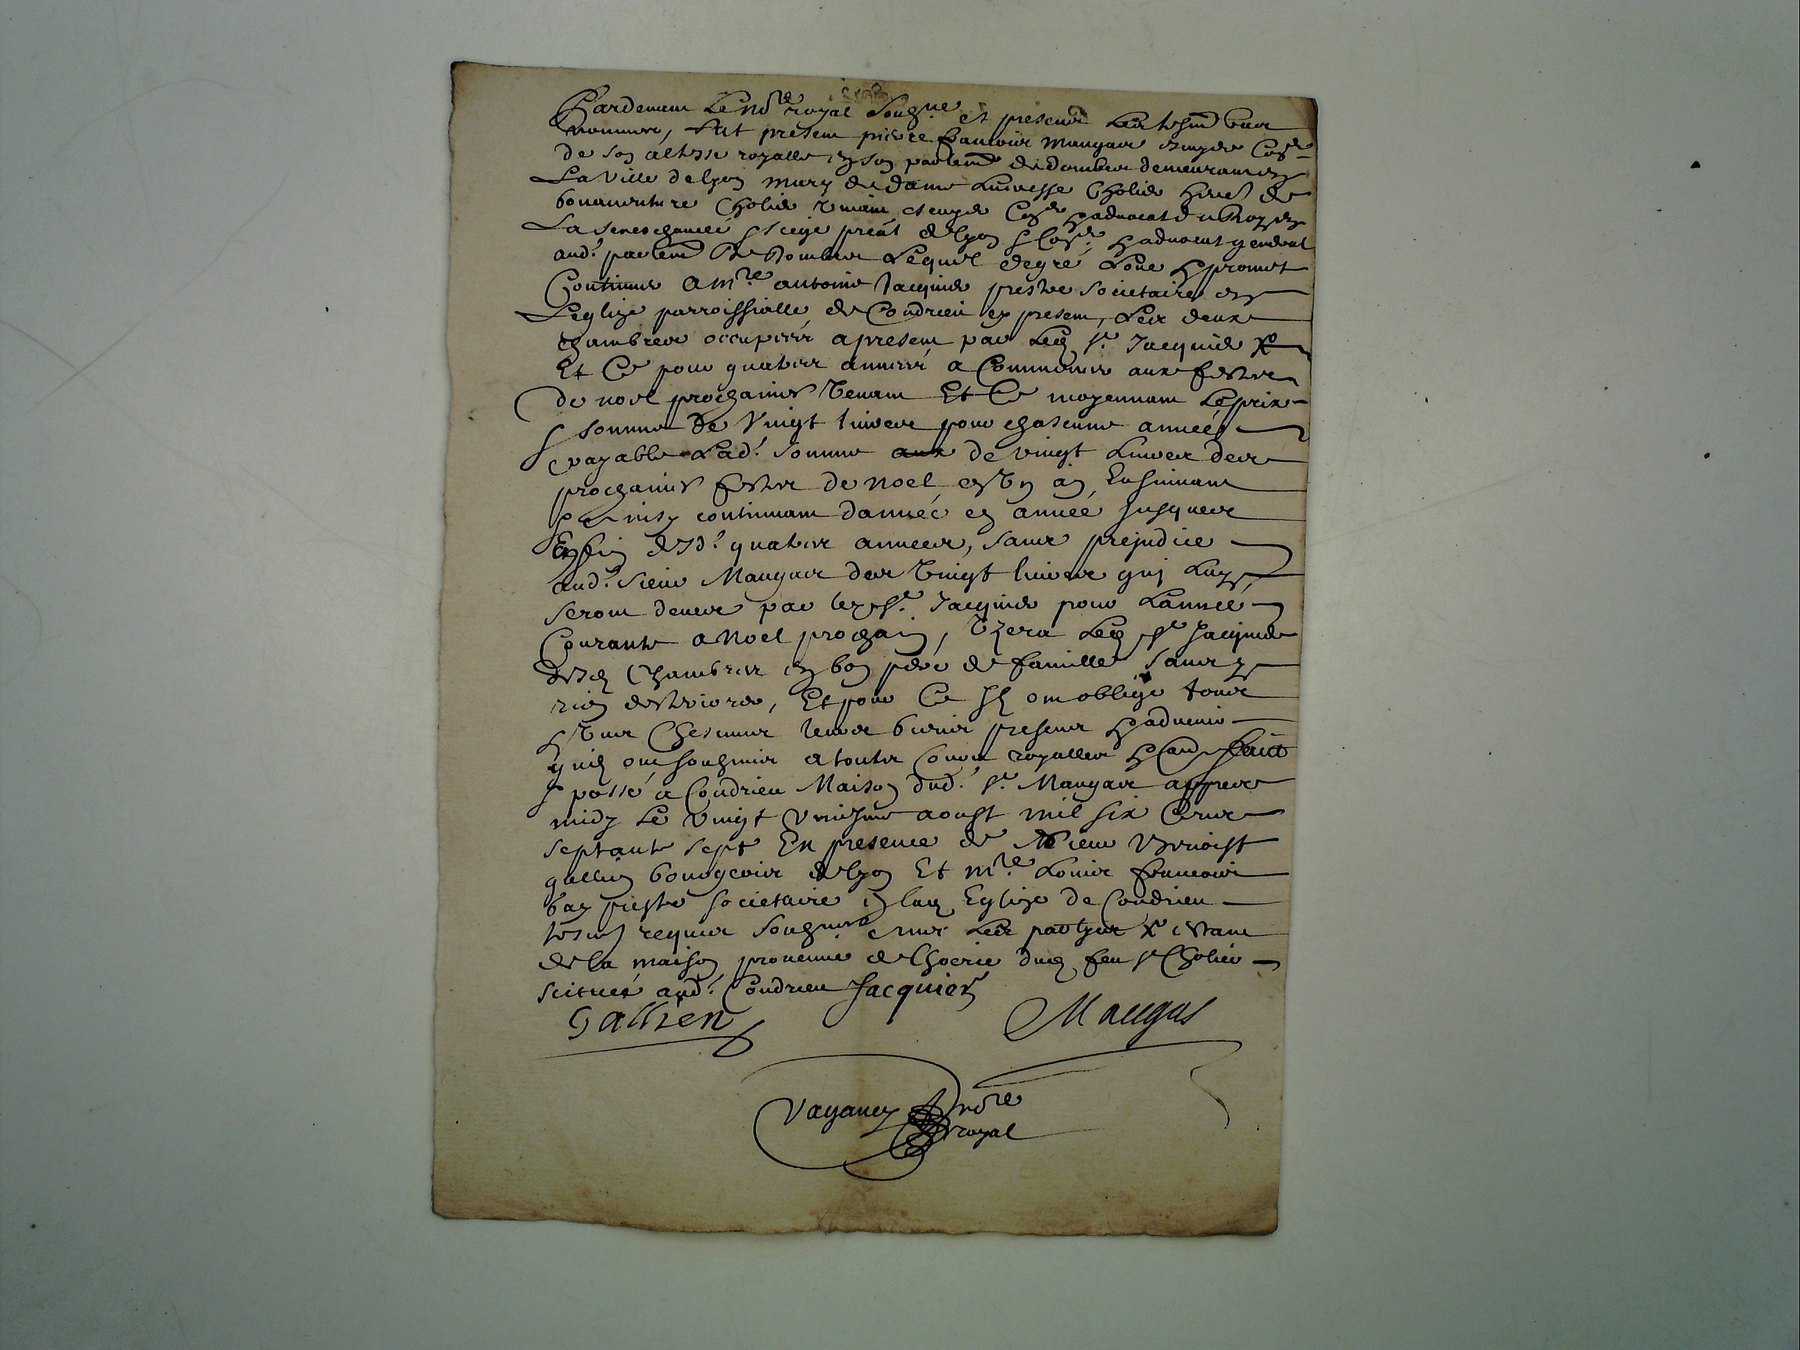 Pardevant Le No.re royal Soubz.ne et presentz Les tesm. bas
nommes, fut present pierre francois Maugas escuyer Con.er
de son altesse royalle en son parlem.t de dombes demeurant en
La ville de lyon mary de dame Lucresse Cholier de
bonaventure Cholier escuyer Con.er & advocat du Roy en
La seneschaucee & siege preal de lyon & Con.er & advocat general
aud.t parlem.t de Dombes Lequel de gre Loue & promet
Continuer a m.re antoine Jacquier prestre societaire en
Leglize parroissialle de Condrieu present, Les deux
chambres occupees a present par Led. s.r Jacquier X
Et Ce pour quatre annees a Commencer aux festes
de noel prochaines venant Et Ce moyennant Le prix
& somme de Vingt livres pour chascune annee
payable Lad. somme aux de vingt Livres des
prochaines festes de Noel en un an Ensuivant
& ainsy continuant d'annee en annee Jusques
En fin desd. quatre annees, sans prejudice
aud. sieur Maugas des Vingt livres quj Luy
seront deues par led. s.r Jacquier pour Lannee
Courante a Noel prochain, Uzera Led. s.r Jacquier
desd. Chambres en bon pere de famille sans y
rien desteriorer, Et pour Ce Ilz ont oblige tous
& Uns Chescuns leurs biens presens & advenir
quilz ont soubzmis a toutes Cours royalles & fait
& passé a Condrieu Maison dud. s.r Maugas appres
midy Le Vingt Uniesme aoust mil six Cens
septante sept En presence de sieur Benoist
gallien bourgeois de lyon Et m.re Louis francois
bay prestre societaire en lad. Eglize de Condrieu
tesm. requis soubzsignes avec Les parties X estant
de la maison provenue de lhoirie dud. feu s.r Cholier
scituee aud. Condrieu Jacquier
Gallien Maugas
Vaganey no.re
royal